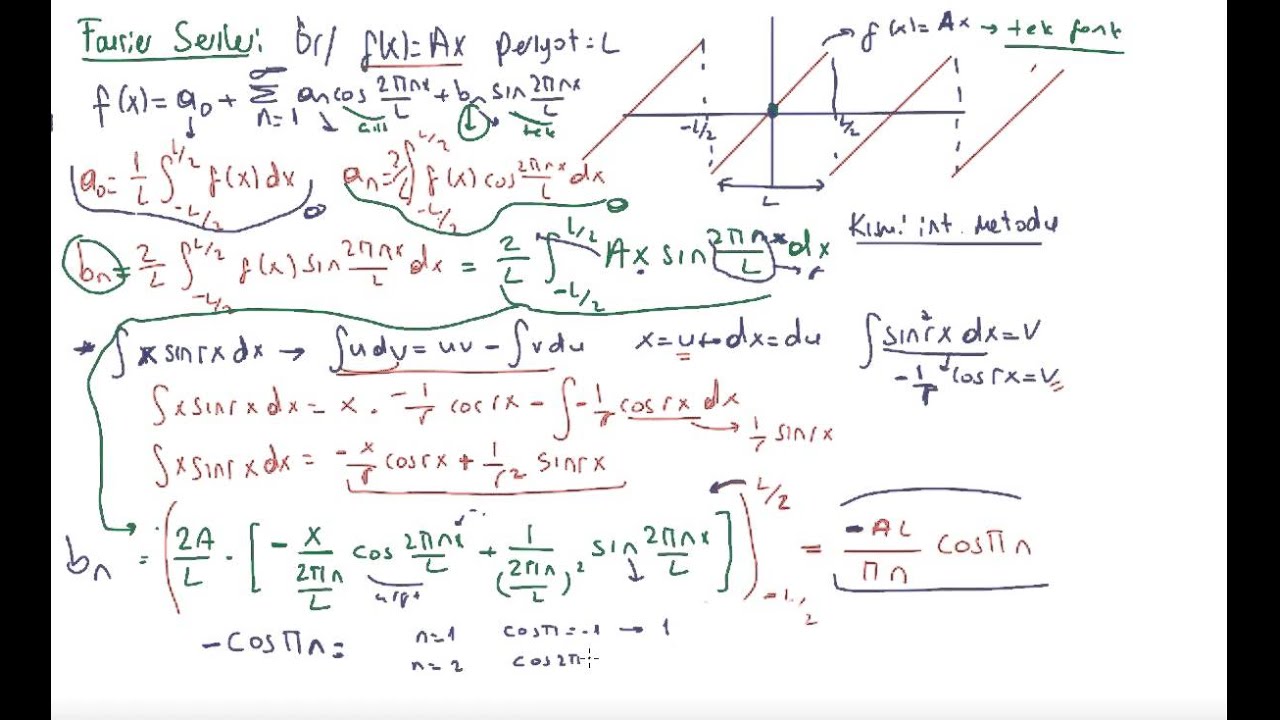 Fourier Seriler: Ör/ f(x)=Ax periyot=L
f(x)=Ax → tek fonk
f(x)=a₀+ ∞ Σ n=1 aₙcos 2πnx/L + bₙ sin 2πnx/L
çift tek
-L/2 L/2
L
a₀= 1/L ∫ L/2 -L/2 f(x)dx aₙ= 2/L ∫ L/2 -L/2 f(x) cos 2πnx/L dx
o o
Kısmi int. metodu
bₙ= 2/L ∫ L/2 -L/2 f(x) sin 2πnx/L dx = 2/L ∫ L/2 -L/2 Ax sin 2πnx/L dx
→ r
* ∫ x sinrx dx → ∫udv = uv - ∫vdu x=u → dx=du ∫ sin rx dx = v
-1/r cosrx = v
∫x sinrx dx = x . -1/r cosrx - ∫ -1/r cosrx dx
1/r sinrx
∫x sinrx dx = -x/r cosrx + 1/r² sinrx
bₙ = ( 2A/L . [ - x/(2πn/L) cos 2πnx/L + 1/(2πn/L)² sin 2πnx/L ] ) L/2 -L/2 = -AL/πn cosπn
-cosπn = n=1 cosπ=-1 → 1
n=2 cos2π